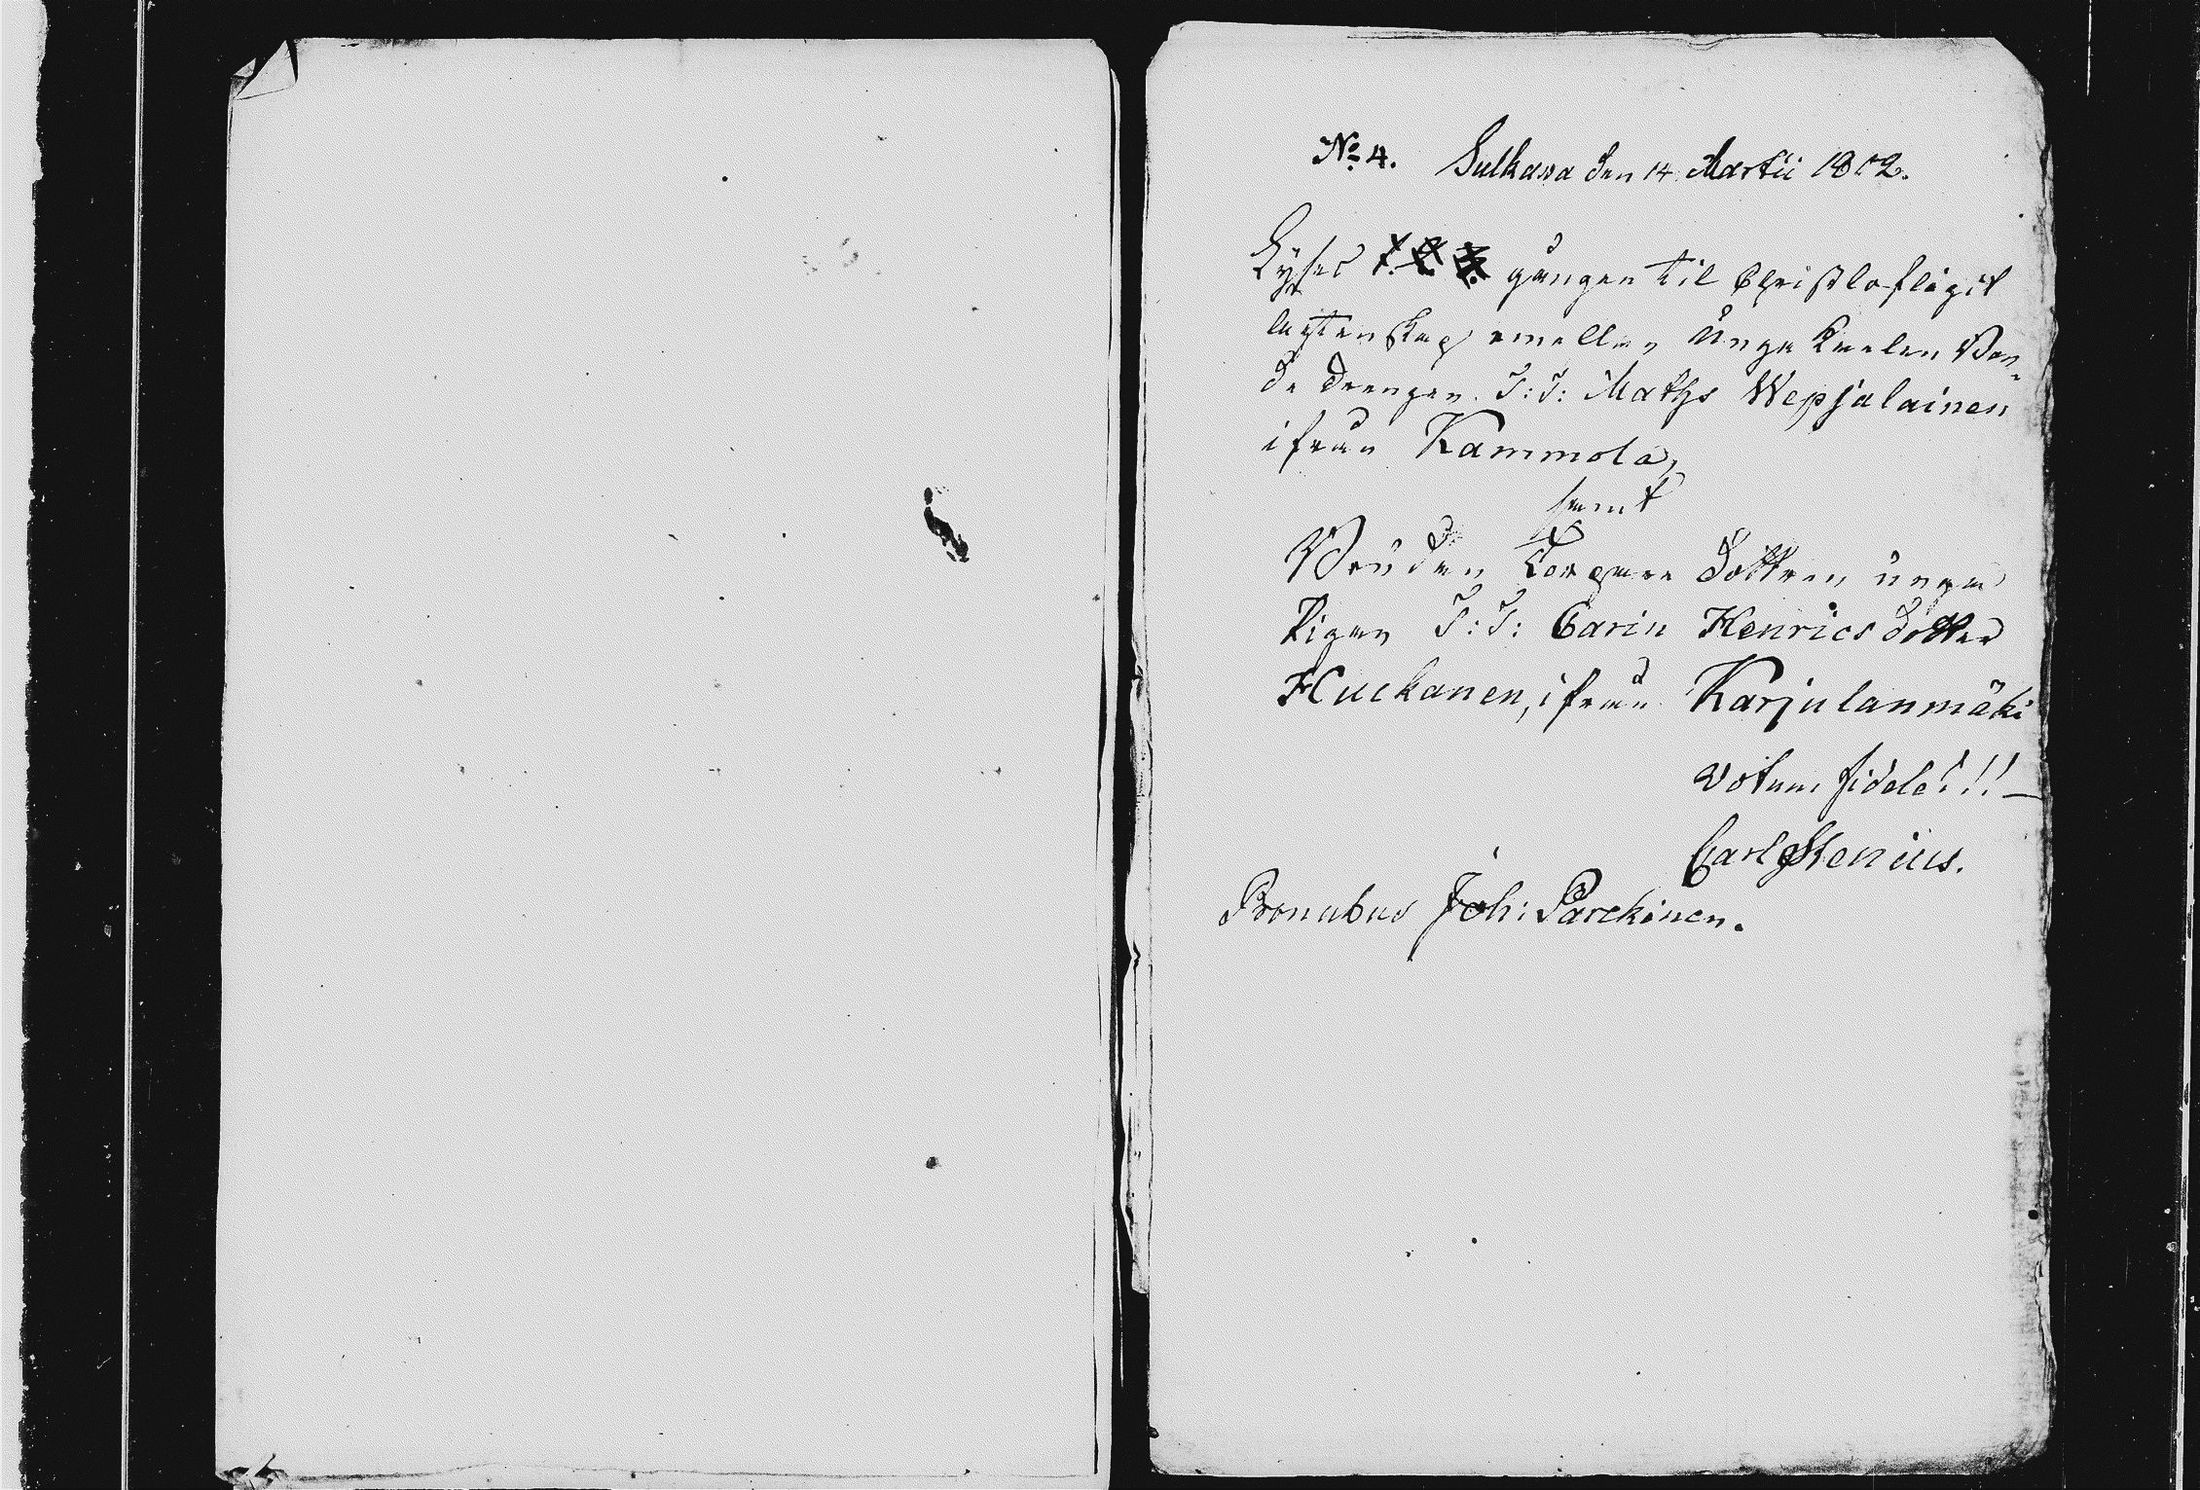 No 4. Sulkawa den 14 Martii 1812.
Lyses 1. 2. 3. gången til Christlofligit
ägtenskap emellan Unga Karlen Bon-
de Drengen T:T: Maths Wepsalainen
ifrån Kammola,
samt
Bruden dottren unga
Pigan T:T: Carin Henricsdotter
Huckanen, ifrån Karjulanmäki
votum fideles!!—
Carl Stenius.
Pronubus Joh: Parckinen.